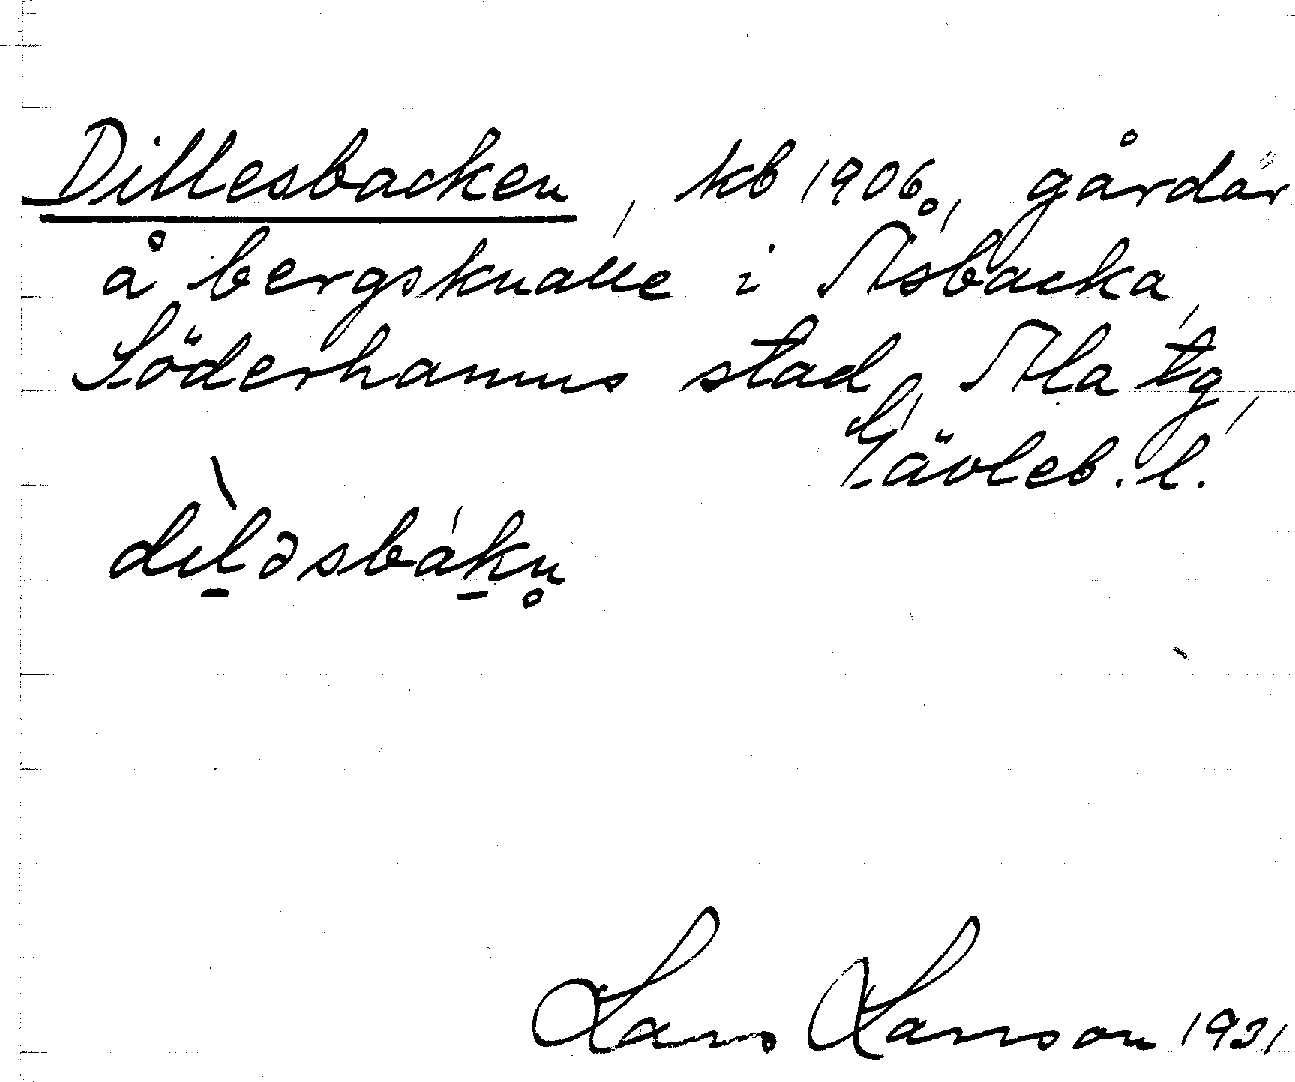 Dillesbacken, kb 1906, gårdar
å bergsknalle i Åsbacka,
Söderhamns stad, Ala tg,
Gävleb. l.
dìl̲əsbák̲n̥
Lars Larsson 1931